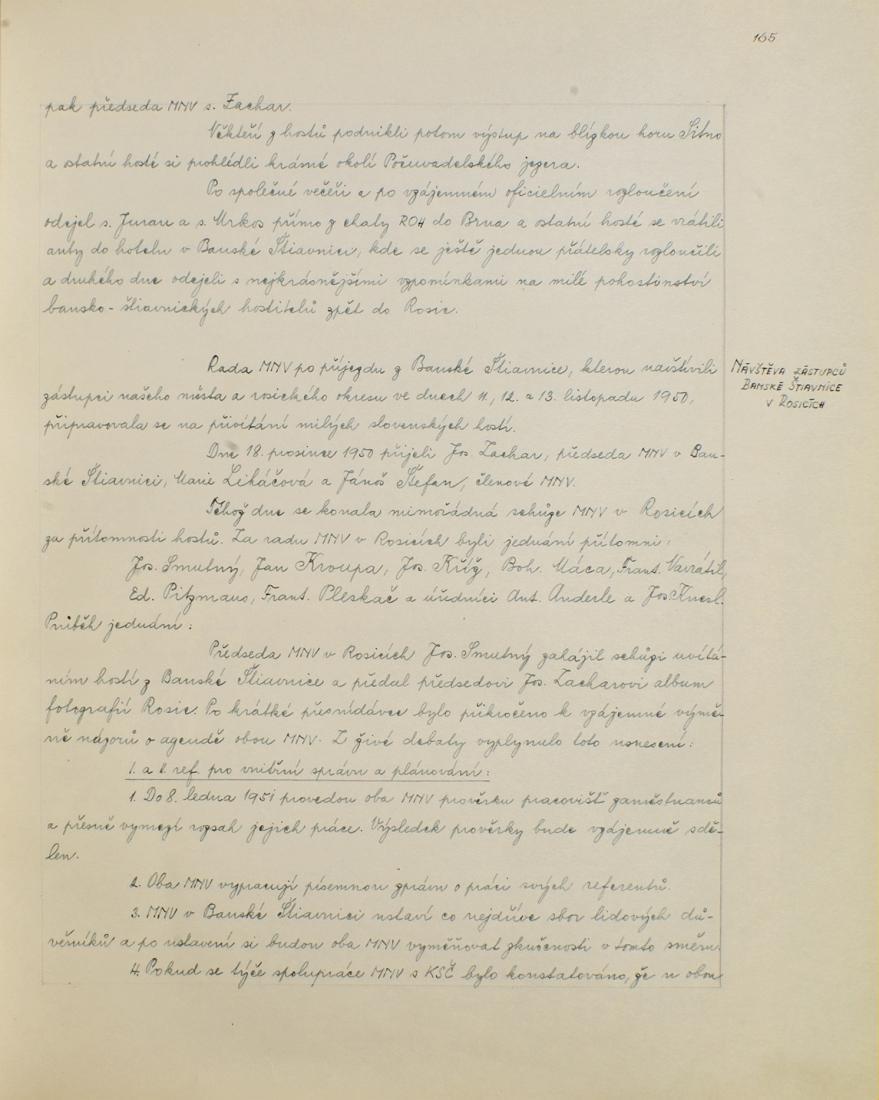 165
pak předseda MNV s. Zachar.
Někteří z hostů podnikli potom výstup na blízkou horu Sitno
a ostatní hosté si prohlédli krásné okolí Počuvadelského jezera.
Po společné večeři a po vzájemném oficielním rozloučení
odejel s. Juran a s. Mrkos přímo z chaty ROH do Brna a ostatní hosté se vrátili
auty do hotelu v Banské Štiavnici, kde se ještě jednou přátelsky rozloučili
a druhého dne odejeli s nejkrásnějšími vzpomínkami na milé pohostinství
bansko-štiavnických hostitelů zpět do Rosic.
Rada MNV po příjezdu z Banské Štiavnice, kterou navštívili
zástupci našeho města a rosického okresu ve dnech 11., 12. a 13. listopadu 1950,
připravovala se na přivítání milých slovenských hostí.
NÁVŠTĚVA ZÁSTUPCŮ
BANSKÉ ŠTIAVNICE
V ROSICÍCH
Dne 18. prosince 1950 přijeli Jos. Zachar, předseda MNV v Ban-
ské Štiavnici, Marie Liháčová a János Štefan, členové MNV.
Téhož dne se konala mimořádná schůze MNV v Rosicích
za přítomnosti hostů. Za radu MNV v Rosicích byli jednání přítomni:
Jos. Smutný, Jan Kroupa, Jos. Kříž, Boh. Máca, Frant. Navrátil,
Ed. Pitzmaus, Frant. Pleskač a úředníci Ant. Anderle a Jos. Knesl.
Průběh jednání:
Předseda MNV v Rosicích Jos. Smutný zahájil schůzi uvítá-
ním hostí z Banské Štiavnice a předal předsedovi Jos. Zacharovi album
fotografií Rosic. Po krátké přesnídávce bylo přikročeno k vzájemné výmě-
ně názorů o agendě obou MNV. Z živé debaty vyplynulo toto usnesení:
1. a 2. ref. pro vnitřní správu a plánování:
1. Do 8. ledna 1951 provedou oba MNV prověrku pracovišť zaměstnanců
a přesně vymezí rozsah jejich práce. Výsledek prověrky bude vzájemně sdě-
len.
2. Oba MNV vypracují písemnou zprávu o práci svých referentů.
3. MNV v Banské Štiavnici ustaví co nejdříve sbor lidových dů-
věrníků a po ustavení si budou oba MNV vyměňovat zkušenosti v tomto směru.
4. Pokud se týče spolupráce MNV s KSČ bylo konstatováno, že u obou